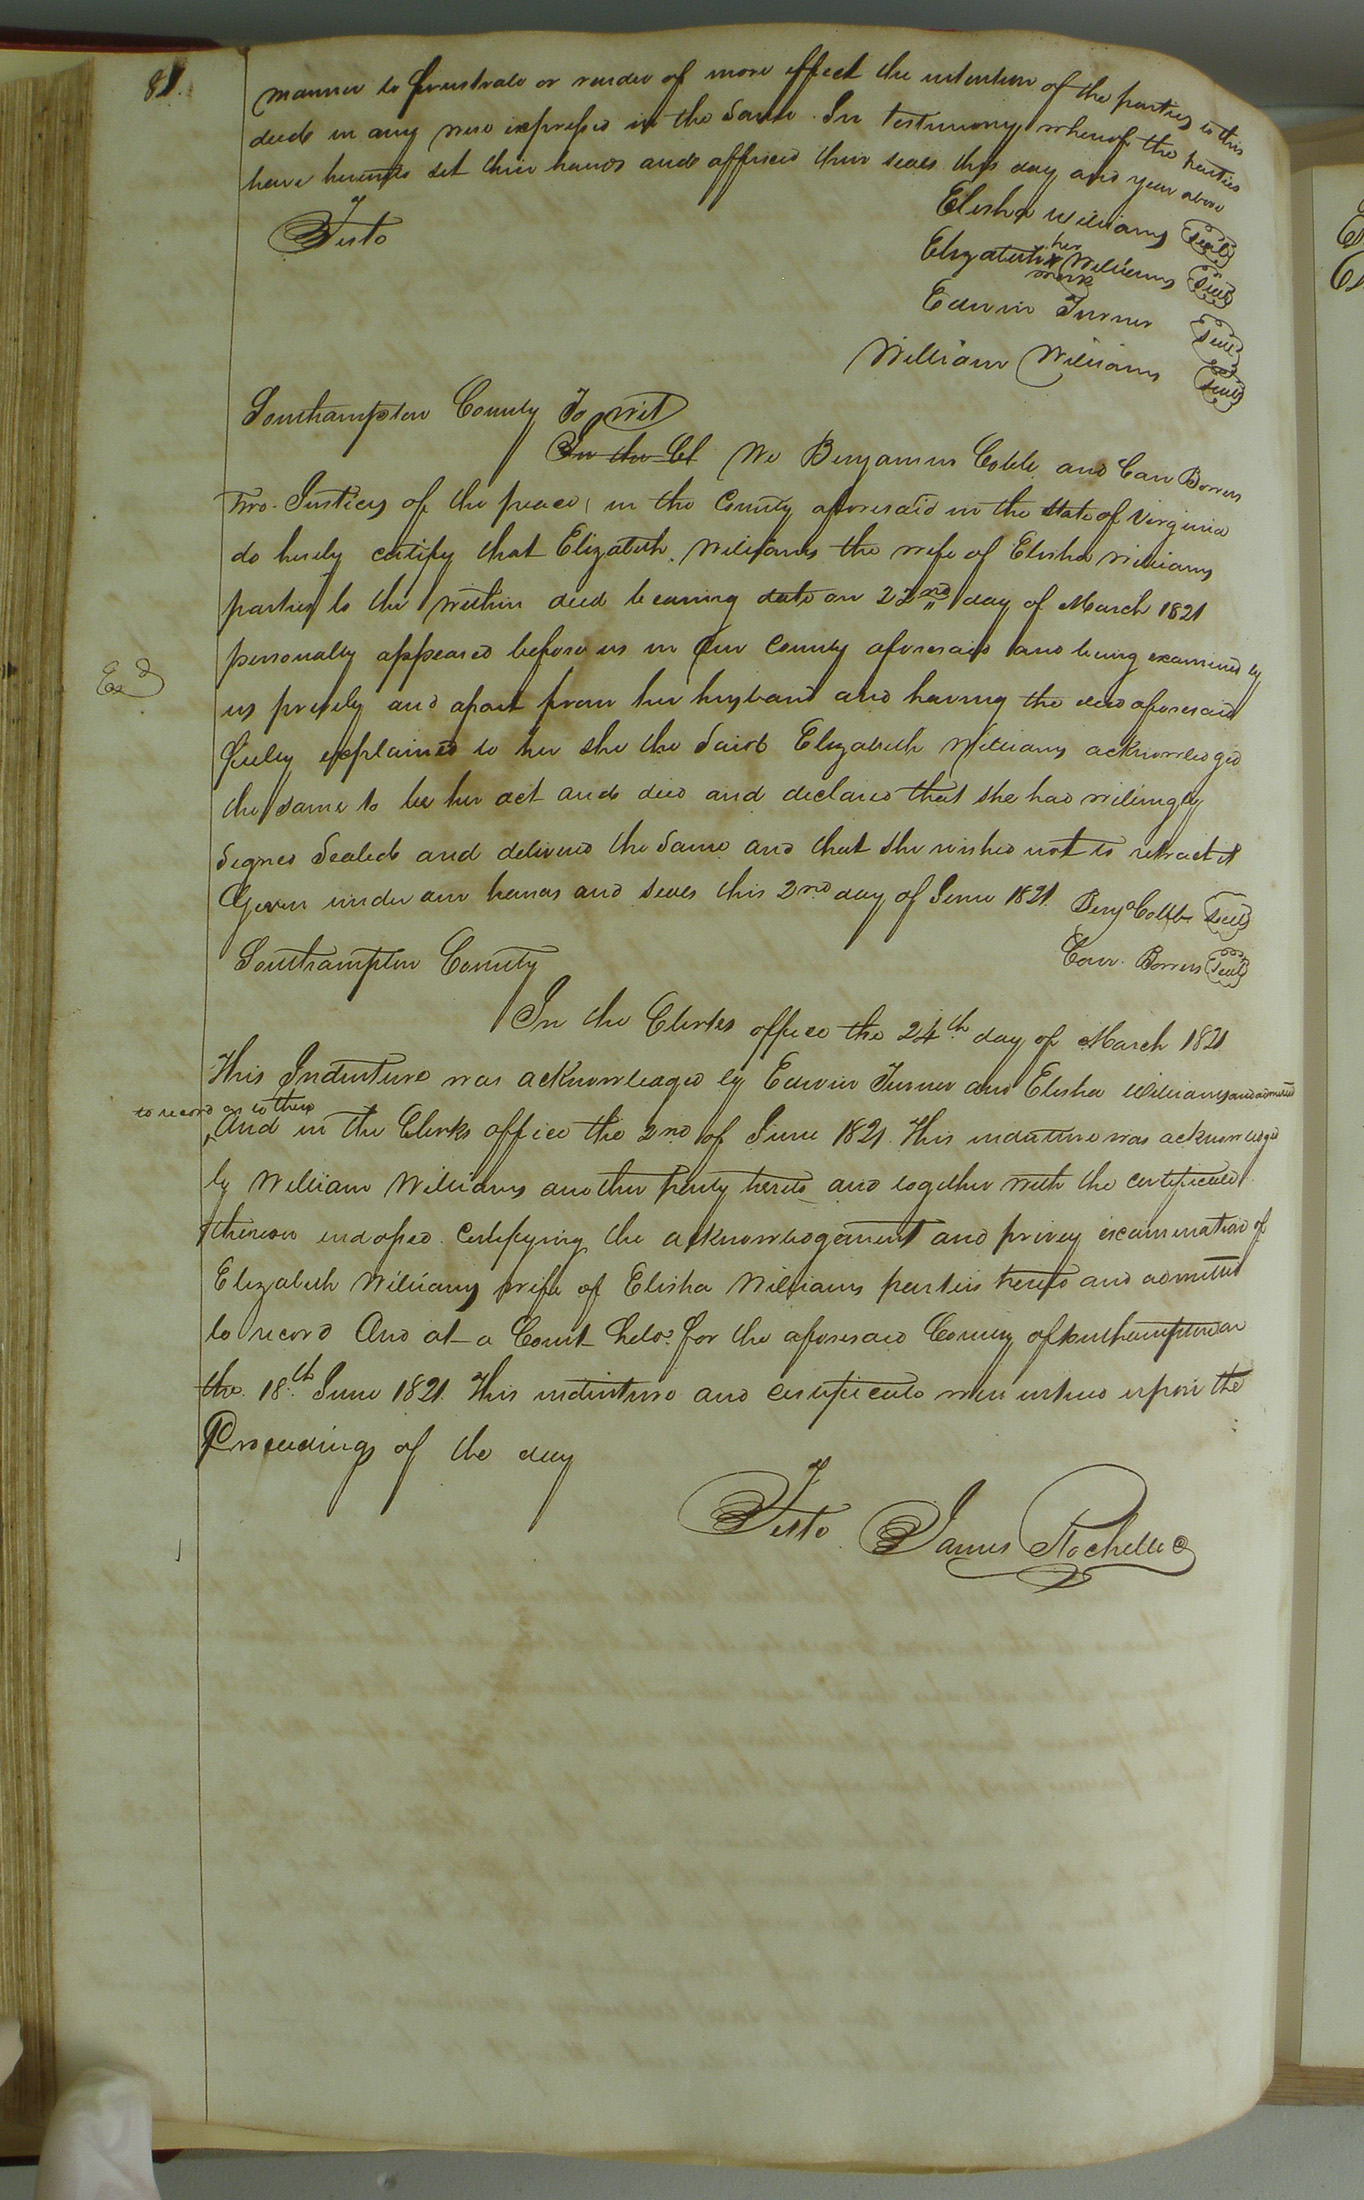 81.
manner to frustrate or render of more effect the intention of the parties to this
deed in any wise expressed in the same. In testimony whereof the parties
have hereunto set their hands and affixed their seals this day and year above
Teste
Elisha Williams Seal
Elizabeth her x mark Williams Seal
Edwin Turner Seal
William Williams Seal
Southampton County To wit
In the Cl We Benjamin Cobb and Carr Bowers
Two Justices of the peace in the County aforesaid in the State of Virginia
do hereby certify that Elizabeth Williams the wife of Elisha Williams
parties to the within deed bearing date on 22nd day of March 1821
personally appeared before us in our County aforesaid and being examined by
us privily and apart from her husband and having the deed aforesaid
fully explained to her she the said Elizabeth Williams acknowledged
the same to be her act and deed and declared that she had willingly
signed sealed and delivered the same and that she wished not to retract it
Given under our hands and seals this 2nd day of June 1821. Benja Cobb Seal
Exd
Southampton County
Carr Bowers Seal
In the Clerks office the 24th day of March 1821
This Indenture was acknowledged by Edwin Turner and Elisha Williams and admitted
to record as to them
And in the Clerks office the 2nd of June 1821. This indenture was acknowledged
by William Williams another party hereto and together with the certificate
thereon indorsed certifying the acknowledgement and privy examination of
Elizabeth Williams wife of Elisha Williams parties hereto and admitted
to record And at a Court held for the aforesaid County of Southampton on
the 18th June 1821. This indenture and certificate were entered upon the
Proceedings of the day
Teste James Rochelle